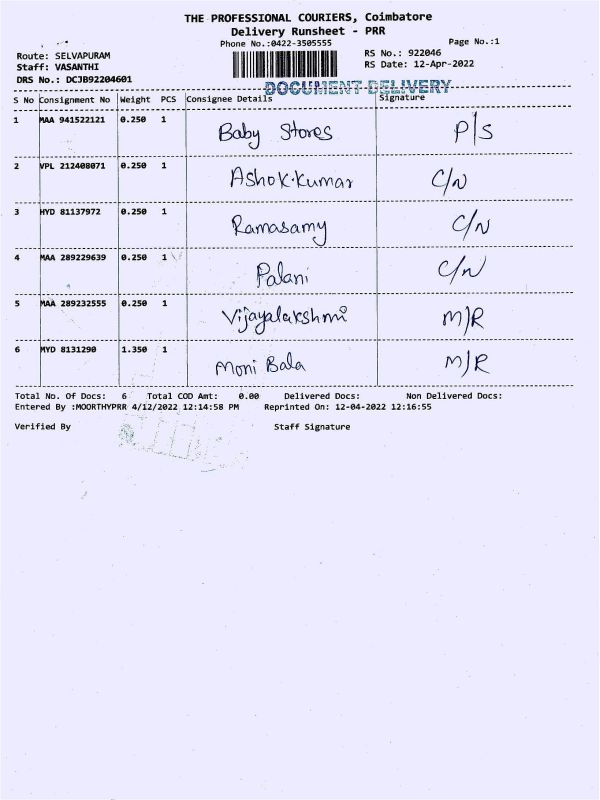 THE PROFESSIONAL COURIERS, Coimbatore
Delivery Runsheet - PRR
Phone No.:0422-3505555 Page No.:1
Route: SELVAPURAM RS No.: 922046
Staff: VASANTHI RS Date: 12-Apr-2022
DRS No.: DCJB92204601
DOCUMENT DELIVERY
S No Consignment No Weight PCS Consignee Details Signature
1 MAA 941522121 0.250 1 Baby Stores P/S
2 VPL 212408071 0.250 1 Ashok.kumar C/N
3 HYD 81137972 0.250 1 Ramasamy C/N
4 MAA 289229639 0.250 1 Palani C/N
5 MAA 289232555 0.250 1 Vijayalakshmi M/R
6 MYD 8131290 1.350 1 Moni Bala M/R
Total No. Of Docs: 6 Total COD Amt: 0.00 Delivered Docs: Non Delivered Docs:
Entered By :MOORTHYPRR 4/12/2022 12:14:58 PM Reprinted On: 12-04-2022 12:16:55
Verified By Staff Signature